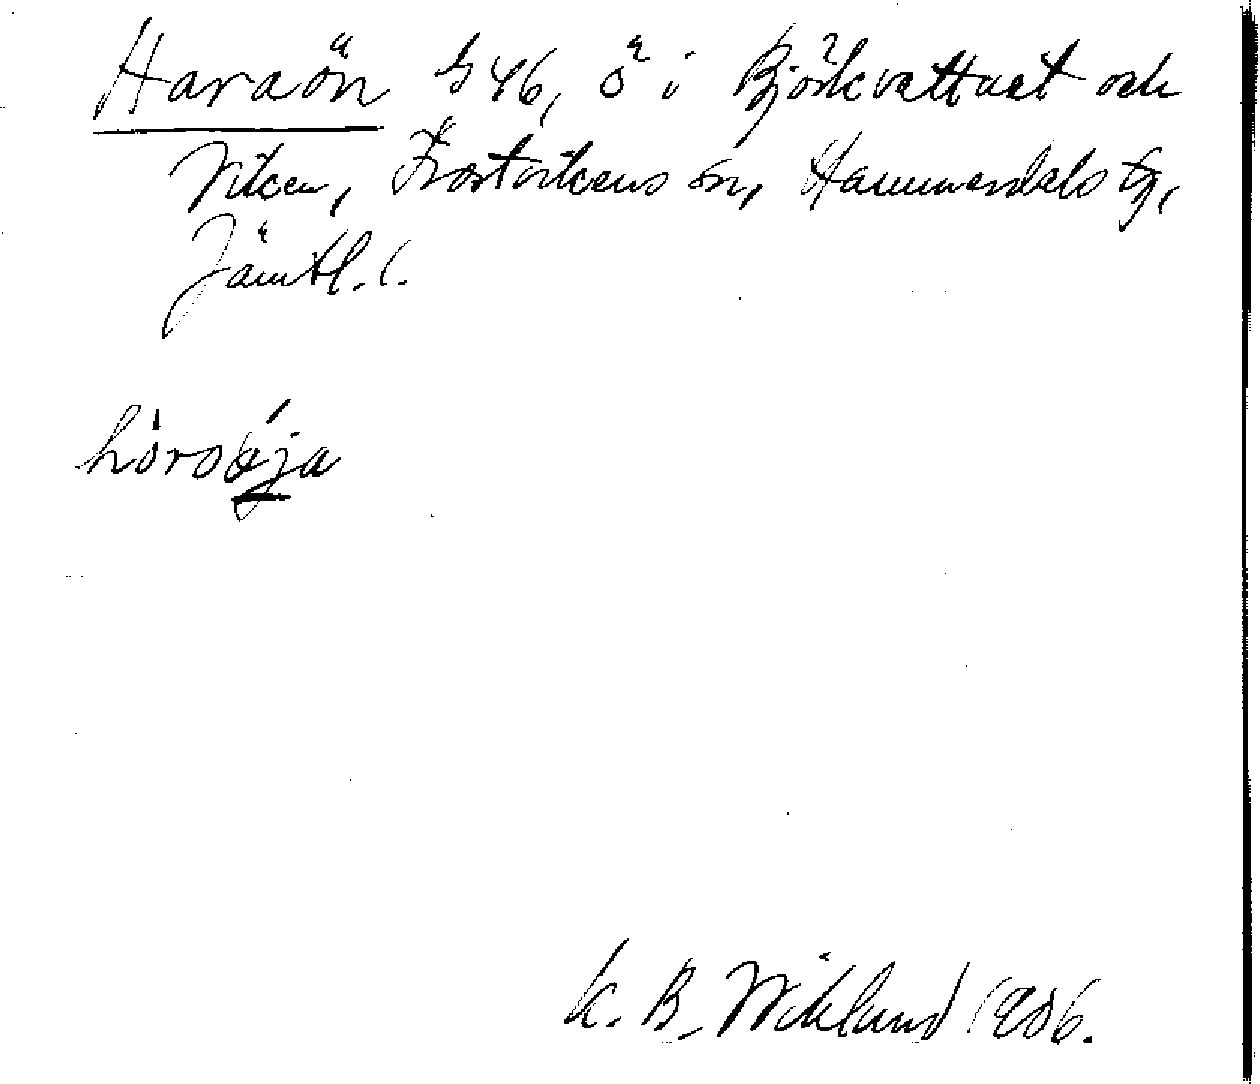 Haraön h 46, ö i Björkvattnet och
Viken, Frostvikens sn, Hammerdals tg,
Jämtl. l.
K. B. Wiklund 1906.